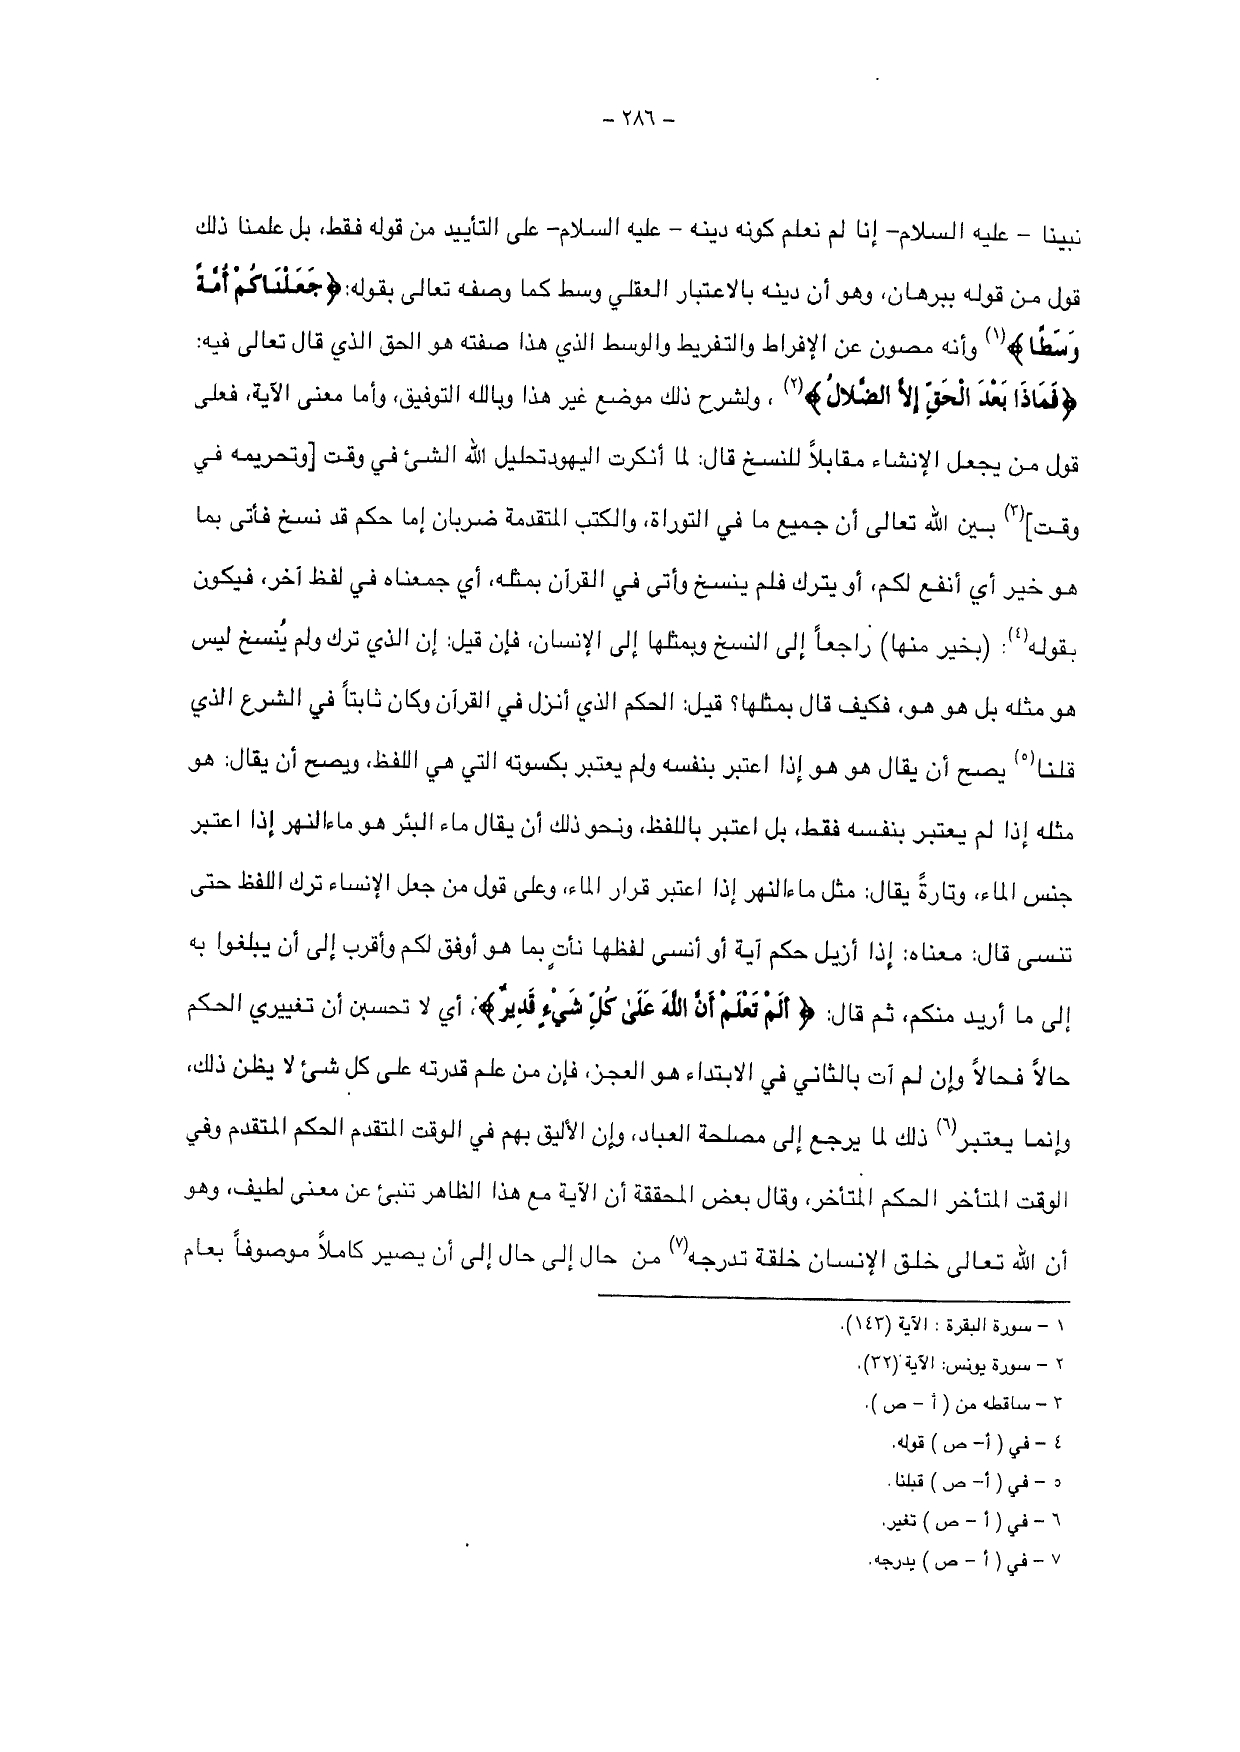 – ٢٨٦ –
نبينا – عليه السلام– إنا لم نعلم كونه دينه – عليه السلام– على التأييد من قوله فقط، بل علمنا ذلك
قول من قوله ببرهان، وهو أن دينه بالاعتبار العقلي وسط كما وصفه تعالى بقوله: ﴿جَعَلْنَاكُمْ أُمَّةً
وَسَطًا﴾(١) وأنه مصون عن الإفراط والتفريط والوسط الذي هذا صفته هو الحق الذي قال تعالى فيه:
﴿فَمَاذَا بَعْدَ الْحَقِّ إِلاَّ الضَّلالُ﴾(٢) ، ولشرح ذلك موضع غير هذا وبالله التوفيق، وأما معنى الآية، فعلى
قول من يجعل الإنشاء مقابلاً للنسخ قال: لما أنكرت اليهودتحليل الله الشئ في وقت [وتحريمه في
وقت](٣) بين الله تعالى أن جميع ما في التوراة، والكتب المتقدمة ضربان إما حكم قد نسخ فأتى بما
هو خير أي أنفع لكم، أو يترك فلم ينسخ وأتى في القرآن بمثله، أي جمعناه في لفظ آخر، فيكون
بقوله(٤): (بخير منها) راجعاً إلى النسخ وبمثلها إلى الإنسان، فإن قيل: إن الذي ترك ولم يُنسخ ليس
هو مثله بل هو هو، فكيف قال بمثلها؟ قيل: الحكم الذي أنزل في القرآن وكان ثابتاً في الشرع الذي
قلنا(٥) يصح أن يقال هو هو إذا اعتبر بنفسه ولم يعتبر بكسوته التي هي اللفظ، ويصح أن يقال: هو
مثله إذا لم يعتبر بنفسه فقط، بل اعتبر باللفظ، ونحو ذلك أن يقال ماء البئر هو ماءالنهر إذا اعتبر
جنس الماء، وتارةً يقال: مثل ماءالنهر إذا اعتبر قرار الماء، وعلى قول من جعل الإنساء ترك اللفظ حتى
تنسى قال: معناه: إذا أزيل حكم آية أو أنسى لفظها نأتٍ بما هو أوفق لكم وأقرب إلى أن يبلغوا به
إلى ما أريد منكم، ثم قال: ﴿ أَلَمْ تَعْلَمْ أَنَّ اللَّهَ عَلَىٰ كُلِّ شَيْءٍ قَدِيرٌ﴾، أي لا تحسبن أن تغييري الحكم
حالاً فحالاً وإن لم آت بالثاني في الابتداء هو العجز، فإن من علم قدرته على كل شئ لا يظن ذلك،
وإنما يعتبر(٦) ذلك لما يرجع إلى مصلحة العباد، وإن الأليق بهم في الوقت المتقدم الحكم المتقدم وفي
الوقت المتأخر الحكم المتأخر، وقال بعض المحققة أن الآية مع هذا الظاهر تنبئ عن معنى لطيف، وهو
أن الله تعالى خلق الإنسان خلقة تدرجه(٧) من حال إلى حال إلى أن يصير كاملاً موصوفاً بعام
١ – سورة البقرة : الآية (١٤٣).
٢ – سورة يونس: الآية (٣٢).
٣ – ساقطه من ( أ – ص ).
٤ – في ( أ– ص ) قوله.
٥ – في ( أ– ص ) قبلنا.
٦ – في ( أ – ص ) تغير.
٧ – في ( أ – ص ) يدرجه.